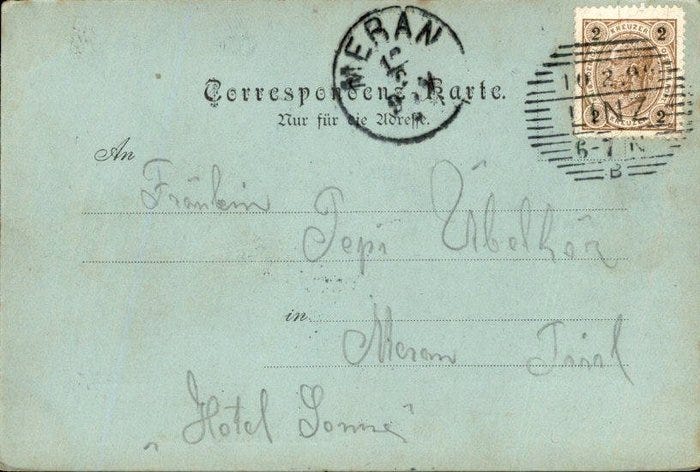 MERAN
2 KREUZER 2
Correspondenz-Karte.
LINZ
2 2
Nur für die Adresse.
6-7 N
B
An
Fräulein
Pepi
in
Meran Tirol
„Hôtel Sonne“